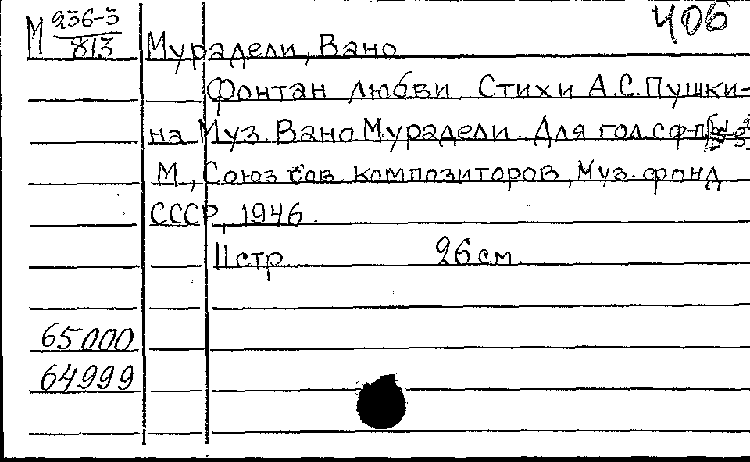 406
М 236-3
813
Мурадели, Вано
Фонтан любви. Стихи А.С.Пушки-
на Муз. Вано Мурадели. Для гол. с ф-п
М., Союз сов. композиторов, Муз. фонд
СССР, 1946.
11 стр. 26 см.
65000
64999